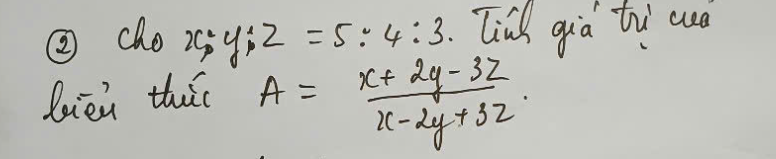 ② Cho x:y:z = 5:4:3. Tính giá trị của
biểu thức A = \frac{x + 2y - 3z}{x - 2y + 3z}.